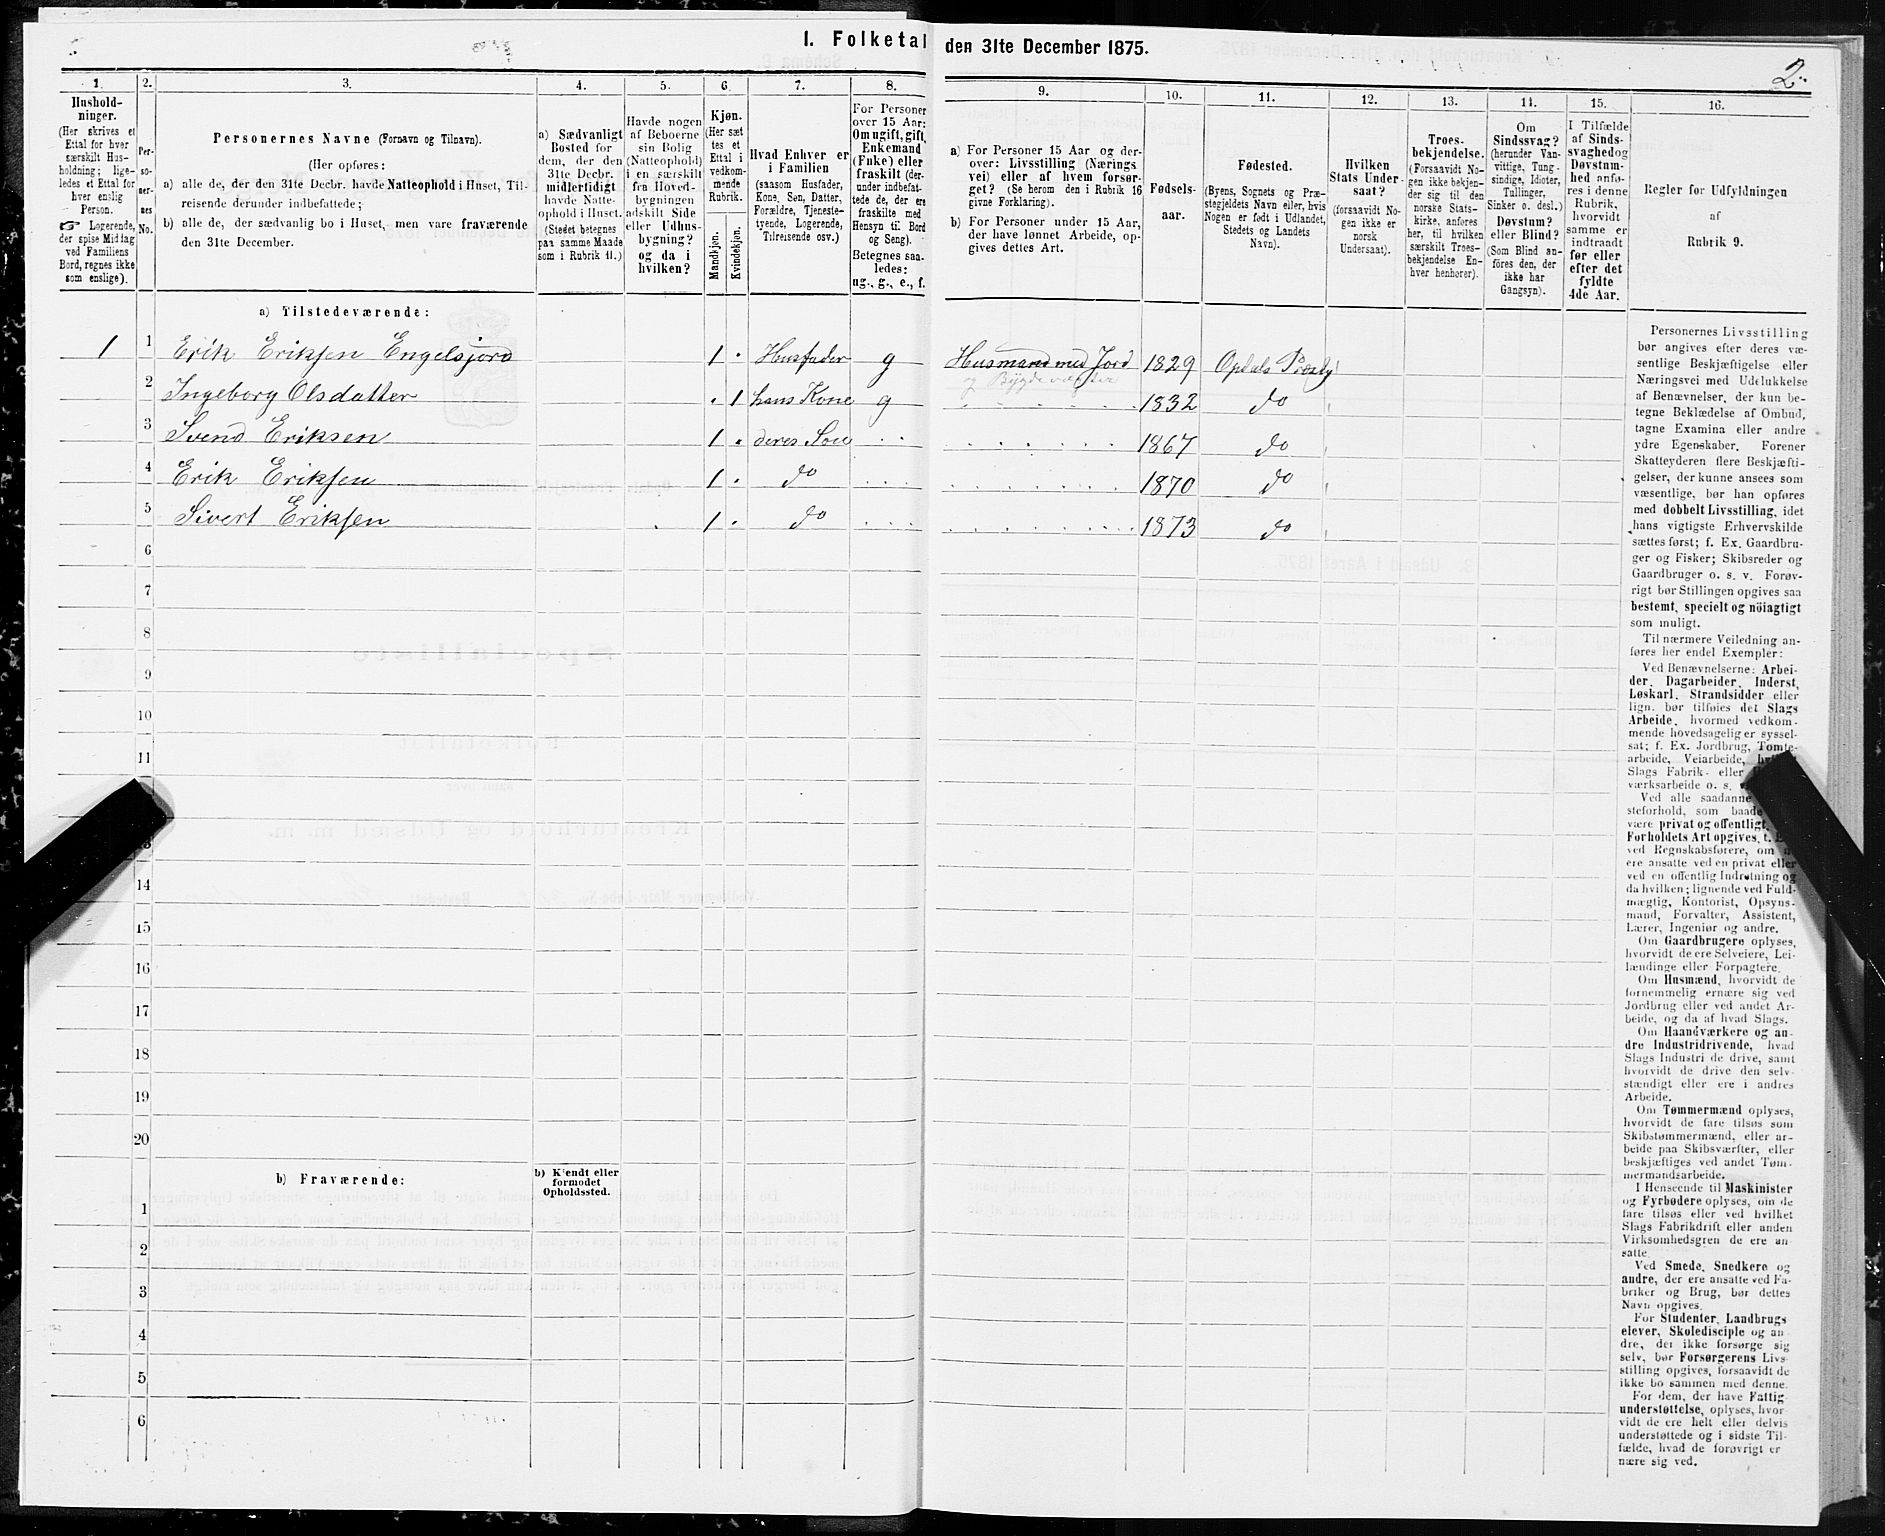 I. Folketal den 31te December 1875.
2.
1. 2. 3. 4. 5. 6. 7. 8. 9. 10. 11. 12. 13. 14. 15. 16.
Hushold-
ninger.
(Her skrives et
Ettal for hver
særskilt Hus-
holdning; lige-
ledes et Ettal for
hver enslig
Person.
☞ Logerende,
der spise Middag
ved Familiens
Bord, regnes ikke
som enslige).
Per-
so-
ner-
nes
No.
Personernes Navne (Fornavn og Tilnavn).
(Her opføres:
a) alle de, der den 31te Decbr. havde Natteophold i Huset, Til-
reisende derunder indbefattede;
b) alle de, der sædvanlig bo i Huset, men vare fraværende
den 31te December.
a) Sædvanligt
Bosted for
dem, der den
31te Decbr.
midlertidigt
havde Natte-
ophold i Huset.
(Stedet betegnes
paa samme Maade
som i Rubrik 11.)
Havde nogen
af Beboerne
sin Bolig
(Natteophold)
i en særskilt
fra Hoved-
bygningen
adskilt Side
eller Udhus-
bygning?
og da i
hvilken?
Kjøn.
(Her sæt-
tes et
Ettal i
vedkom-
mende
Rubrik.
Mandkjøn.
Kvindekjøn.
Hvad Enhver er
i Familien
(saasom Husfader,
Kone, Søn, Datter,
Forældre, Tjeneste-
tyende, Logerende,
Tilreisende osv.)
For Personer
over 15 Aar:
Om ugift, gift,
Enkemand
(Enke) eller
fraskilt (der-
under indbefat-
tede de, der ere
fraskilte med
Hensyn til Bord
og Seng).
Betegnes saa-
ledes:
ug., g., e., f.
a) For Personer 15 Aar og der-
over: Livsstilling (Nærings
vei) eller af hvem forsør-
get? (Se herom den i Rubrik 16
givne Forklaring).
b) For Personer under 15 Aar,
der have lønnet Arbeide, op-
gives dettes Art.
Fødsels-
aar.
Fødested.
(Byens, Sognets og Præ-
stegjeldets Navn eller, hvis
Nogen er født i Udlandet,
Stedets og Landets
Navn).
Hvilken
Stats Under
saat?
(forsaavidt No-
gen ikke er
norsk
Undersaat).
Troes-
bekjendelse.
(Forsaavidt No-
gen ikke bekjen-
der sig til den
norske Stats-
kirke, anføres
her, til hvilken
særskilt Troes-
bekjendelse En-
hver henhører).
Om
Sindssvag?
(herunder Van-
vittige, Tung-
sindige, Idioter,
Tullinger,
Sinker o. desl.)
Døvstum?
eller Blind?
(Som Blind an-
føres den, der
ikke har
Gangsyn).
I Tilfælde
af Sinds-
svaghed og
Døvstum-
hed anfø-
res i denne
Rubrik,
hvorvidt
samme er
indtraadt
før eller
efter det
fyldte
4de Aar.
Regler for Udfyldningen
af
Rubrik 9.
a) Tilstedeværende:
1 1 Erik Eriksen Engelsjord 1 Husfader g Husmand med Jord 1829 Opdals Præstgj
2 Ingeborg Olsdatter 1 hans Kone g 1832 do
3 Svend Eriksen 1 deres Søn 1867 do
4 Erik Eriksen 1 do 1870 do
5 Sivert Eriksen 1 do 1873 do
6
7
8
9
10
11
14
15
16
17
18
19
20
b) Fraværende: b) Kjendt eller
formodet
Opholdssted.
1
2
3
4
5
6
Personernes Livsstilling
bør angives efter deres væ-
sentlige Beskjæftigelse eller
Næringsvei med Udelukkelse
af Benævnelser, der kun be-
tegne Beklædelse af Ombud,
tagne Examina eller andre
ydre Egenskaber. Forener
Skatteyderen flere Beskjæfti-
gelser, der kunne ansees som
væsentlige, bør han opføres
med dobbelt Livsstilling, idet
hans vigtigste Erhvervskilde
sættes først; f. Ex. Gaardbru-
ger og Fisker; Skibsreder og
Gaardbruger o. s. v. Forøv-
rigt bør Stillingen opgives saa
bestemt, specielt og nöiagtigt
som muligt.
Til nærmere Veiledning an-
føres her endel Exempler:
Ved Benævnelserne: Arbei-
der, Dagarbeider, Inderst,
Løskarl, Strandsidder eller
lign. bør tilføies det Slags
Arbeide, hvormed vedkom-
mende hovedsagelig er syssel-
sat; f. Ex. Jordbrug, Tomte-
arbeide, Veiarbeide,
Slags Fabrik- eller
værksarbeide o. s.
Ved alle saadanne
steforhold, som baade
være privat og offentligt,
Forholdets Art opgives, t.
ved Regnskabsførere, om
ere ansatte ved en privat eller
ved en offentlig Indretning og
da hvilken; lignende ved Fuld-
mægtig, Kontorist, Opsyns-
mand, Forvalter, Assistent,
Lærer, Ingeniør og andre.
Om Gaardbrugere oplyses,
hvorvidt de ere Selveiere, Lei-
lændinge eller Forpagtere.
Om Husmænd, hvorvidt de
fornemmelig ernære sig ved
Jordbrug eller ved andet Ar-
beide, og da af hvad Slags.
Om Haandværkere og an-
dre Industridrivende, hvad
Slags Industri de drive, samt
hvorvidt de drive den selv-
stændigt eller ere i andres
Arbeide.
Om Tømmermænd oplyses,
hvorvidt de fare tilsøs som
Skibstømmermænd, eller ar-
beide paa Skibsværfter, eller
beskjæftiges ved andet Tøm-
mermandsarbeide.
I Henseende til Maskinister
og Fyrbødere oplyses, om de
fare tilsøs eller ved hvilket
Slags Fabrikdrift eller anden
Virksomhedsgren de ere an-
satte.
Ved Smede, Snedkere og
andre, der ere ansatte ved Fa-
briker og Brug, bør dettes
Navn opgives.
For Studenter, Landbrugs
elever, Skoledisciple og an-
dre, der ikke forsørge sig
selv, bør Forsørgerens Livs-
stilling opgives, forsaavidt de
ikke bo sammen med denne.
For dem, der have Fattig-
understøttelse, oplyses, hvor-
vidt de ere helt eller delvis
understøttede og i sidste Til-
fælde, hvad de forøvrigt er
nære sig ved.